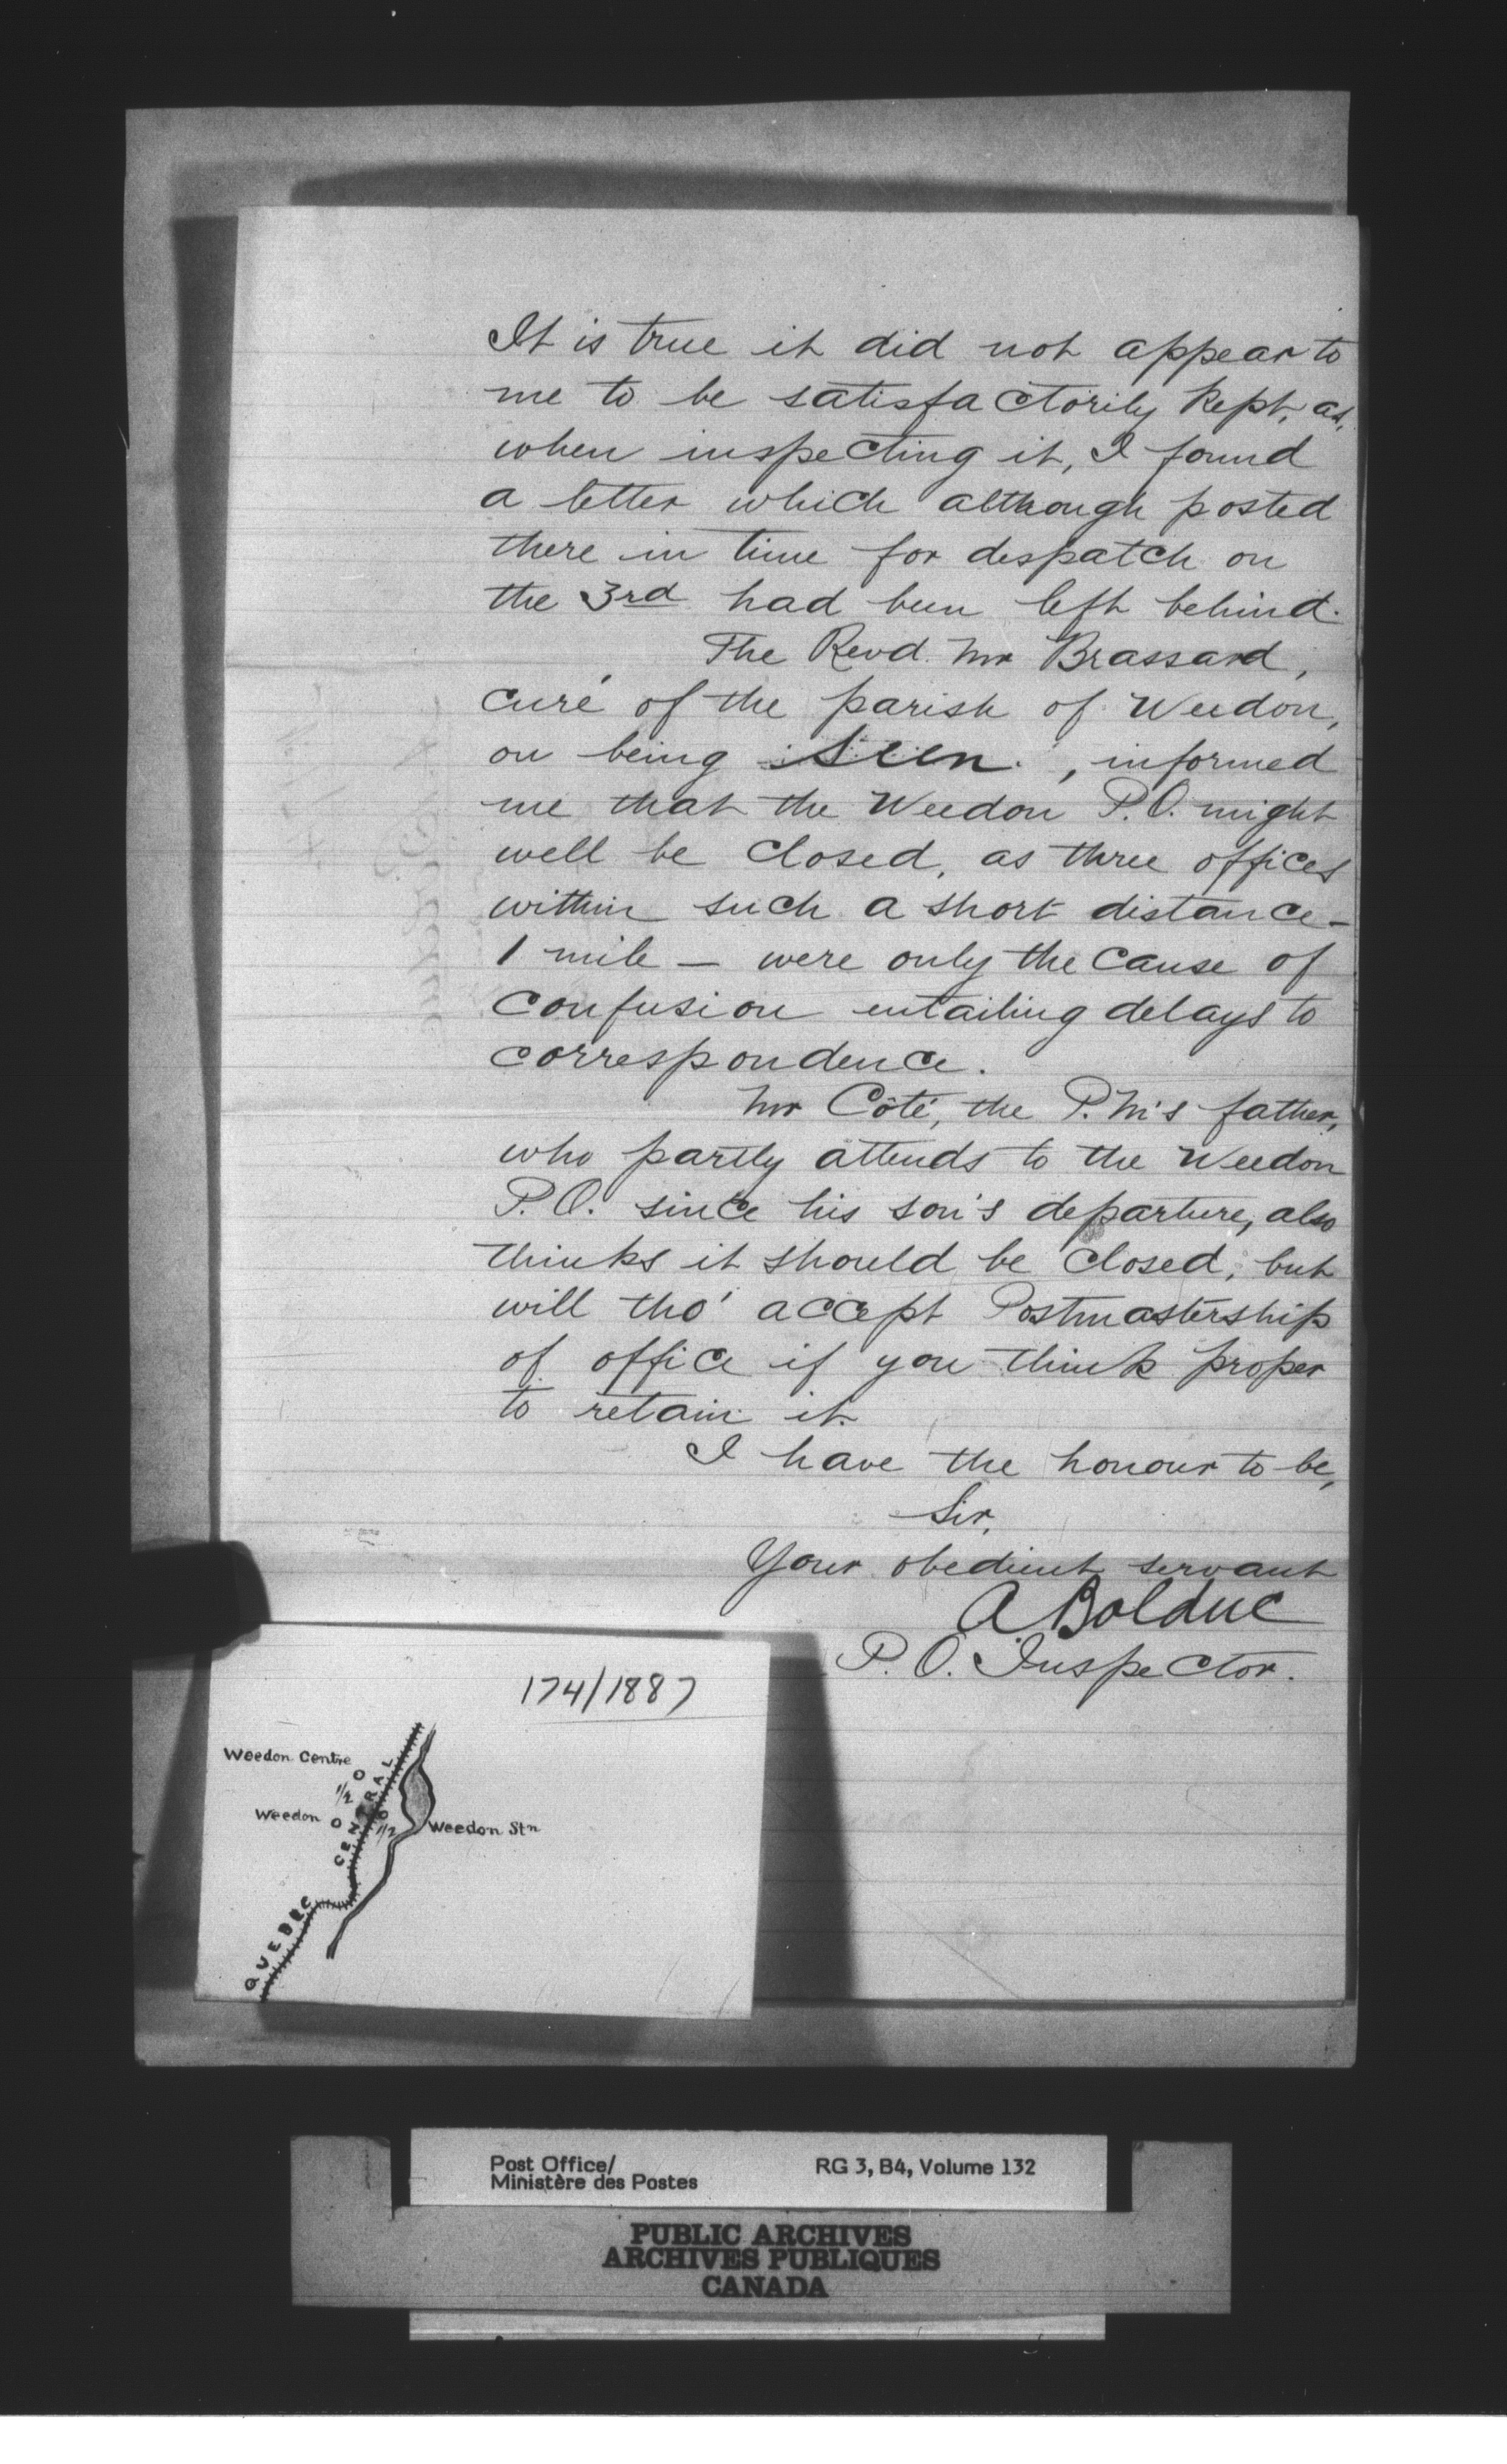 It is true it did not appear to
me to be satisfactorily kept, as,
when inspecting it, I found
a letter which although posted
there in time for despatch on
the 3rd had been left behind.
The Revd. Mr Brassard,
curé of the parish of Weedon,
on being seen, informed
me that the Weedon P.O. might
well be closed, as three offices
within such a short distance –
1 mile – were only the cause of
confusion entailing delays to
correspondence.
Mr Côté, the P.M's father,
who partly attends to the Weedon
P.O. since his son's departure, also
thinks it should be closed, but
will tho' accept Postmastership
of office if you think proper
to retain it.
I have the honour to be,
Sir,
Your obedient servant
A Bolduc
P.O. Inspector.
174/1887
Weedon Centre
1/2
Weedon
1/2
Weedon Stn
QUEBEC CENTRAL
Post Office/
Ministère des Postes
RG 3, B4, Volume 132
PUBLIC ARCHIVES
ARCHIVES PUBLIQUES
CANADA